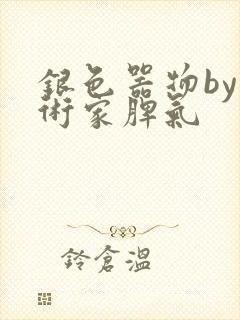 銀色器物by
術家脾氣
鈴倉溫